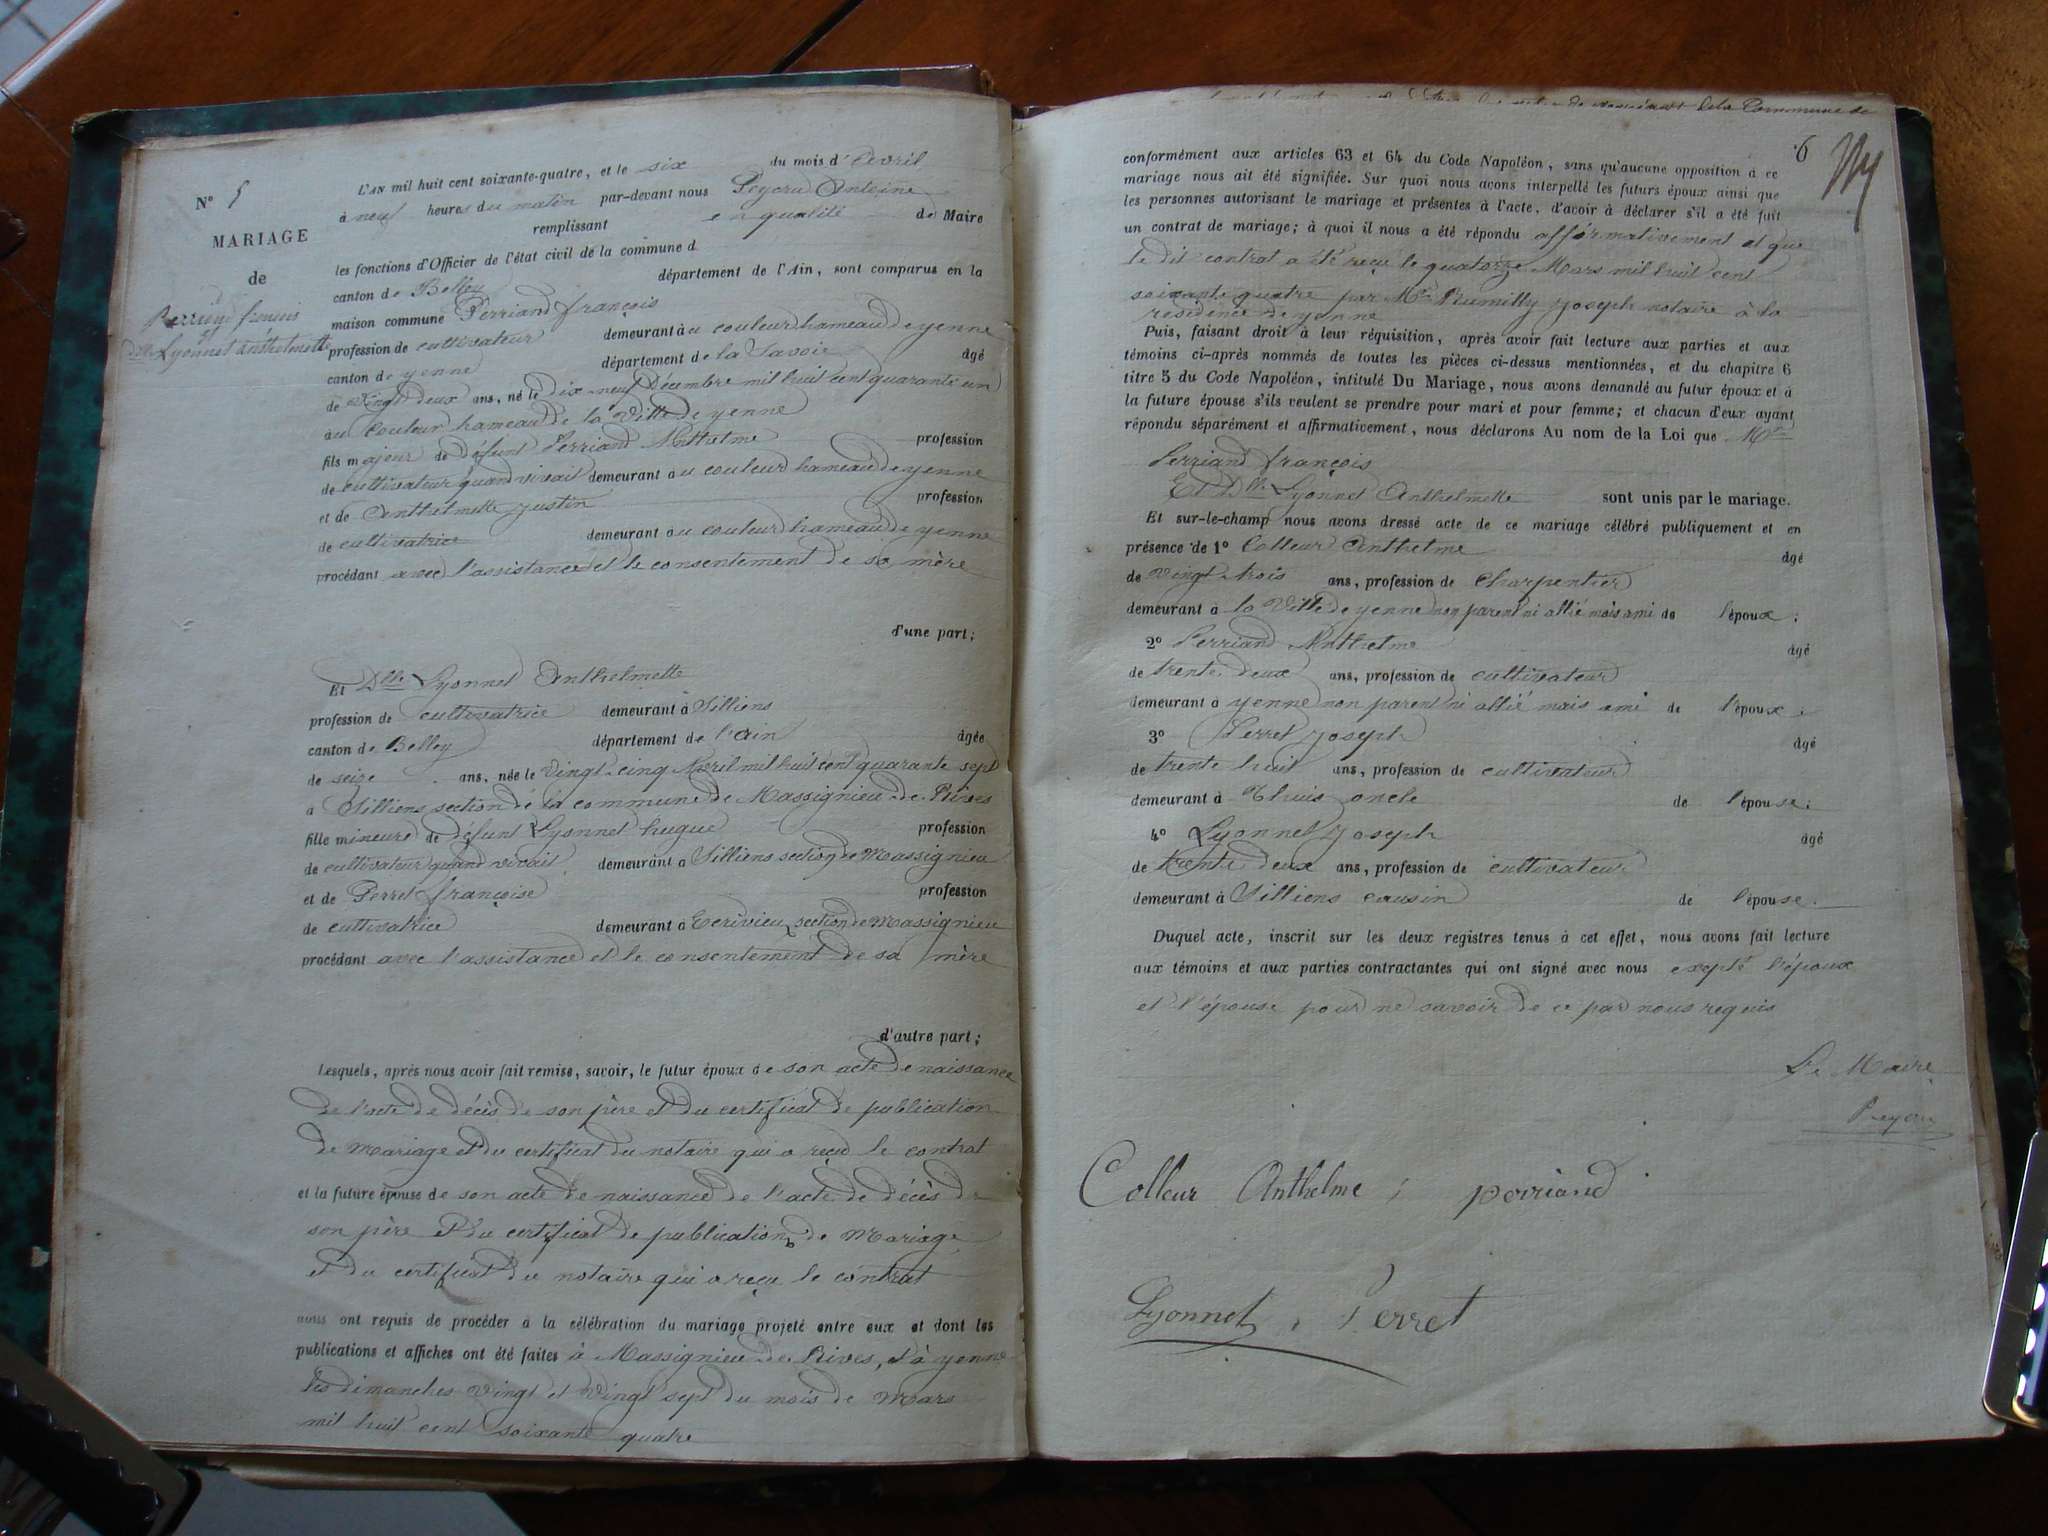 N° 5
MARIAGE
de
Perriand françois
Dlle Lyonnet anthelmette
L'AN mil huit cent soixante-quatre, et le six du mois d'Avril
à neuf heures du matin par-devant nous Antoine
remplissant en qualité de Maire
les fonctions d'Officier de l'état civil de la commune d
canton de Belley département de l'Ain, sont comparus en la
maison commune Perriand françois
profession de cultivateur demeurant à au couleur hameau de yenne
canton de yenne département de la Savoie âgé
de Vingt deux ans, né le dix-neuf Décembre mil huit cent quarante un
au couleur hameau de la Ville de yenne
fils majeur de défunt Perriand Anthelme profession
de cultivateur quand vivait demeurant au couleur hameau de yenne
et de Anthelmette justin profession
de cultivatrice demeurant au couleur hameau de yenne
procédant avec l'assistance et le consentement de sa mère
d'une part;
Et Dlle Lyonnet Anthelmette
profession de cultivatrice demeurant à Silliens
canton de Belley département de l'ain âgée
de seize ans, née le vingt-cinq Avril mil huit cent quarante sept
à Silliens section de la commune de Massignieu de Rives
fille mineure de défunt Lyonnet hugue profession
de cultivateur quand vivait demeurant à Silliens section de Massignieu
et de Perret françoise profession
de cultivatrice demeurant à Ecrivieu section de Massignieu
procédant avec l'assistance et le consentement de sa mère
d'autre part;
Lesquels, après nous avoir fait remise, savoir, le futur époux de son acte de naissance
de l'acte de décès de son père et du certificat de publication
de mariage et du certificat du notaire qui a reçu le contrat
et la future épouse de son acte de naissance de l'acte de décès de
son père et du certificat de publication de Mariage
et du certificat du notaire qui a reçu le contrat
nous ont requis de procéder à la célébration du mariage projeté entre eux et dont les
publications et affiches ont été faites à Massignieu de Rives, et à yenne
les dimanches vingt et vingt sept du mois de Mars
mil huit cent soixante quatre
de la Commune de
6
conformément aux articles 63 et 64 du Code Napoléon, sans qu'aucune opposition à ce
mariage nous ait été signifiée. Sur quoi nous avons interpellé les futurs époux ainsi que
les personnes autorisant le mariage et présentes à l'acte, d'avoir à déclarer s'il a été fait
un contrat de mariage; à quoi il nous a été répondu affirmativement et que
le dit contrat a été reçu le quatorze Mars mil huit cent
soixante quatre par Me Rumilly joseph notaire à la
résidence de yenne
Puis, faisant droit à leur réquisition, après avoir fait lecture aux parties et aux
témoins ci-après nommés de toutes les pièces ci-dessus mentionnées, et du chapitre 6
titre 5 du Code Napoléon, intitulé Du Mariage, nous avons demandé au futur époux et à
la future épouse s'ils veulent se prendre pour mari et pour femme; et chacun d'eux ayant
répondu séparément et affirmativement, nous déclarons Au nom de la Loi que Mr
Perriand françois
Et Dlle Lyonnet Anthelmette sont unis par le mariage.
Et sur-le-champ nous avons dressé acte de ce mariage célébré publiquement et en
présence de 1° Colleur Anthelme âgé
de vingt-trois ans, profession de Charpentier
demeurant à la Ville de yenne non parent ni allié mais ami de l'époux;
2° Perriand Anthelme âgé
de trente deux ans, profession de cultivateur
demeurant à yenne non parent ni allié mais ami de l'époux;
3° Perret joseph âgé
de trente huit ans, profession de cultivateur
demeurant à Thuis oncle de l'épouse;
4° Lyonnet joseph âgé
de trente deux ans, profession de cultivateur
demeurant à Silliens cousin de l'épouse.
Duquel acte, inscrit sur les deux registres tenus à cet effet, nous avons fait lecture
aux témoins et aux parties contractantes qui ont signé avec nous excpté l'époux
et l'épouse pour ne savoir de ce par nous requis
Le Maire
Colleur Anthelme perriand
Lyonnet Perret